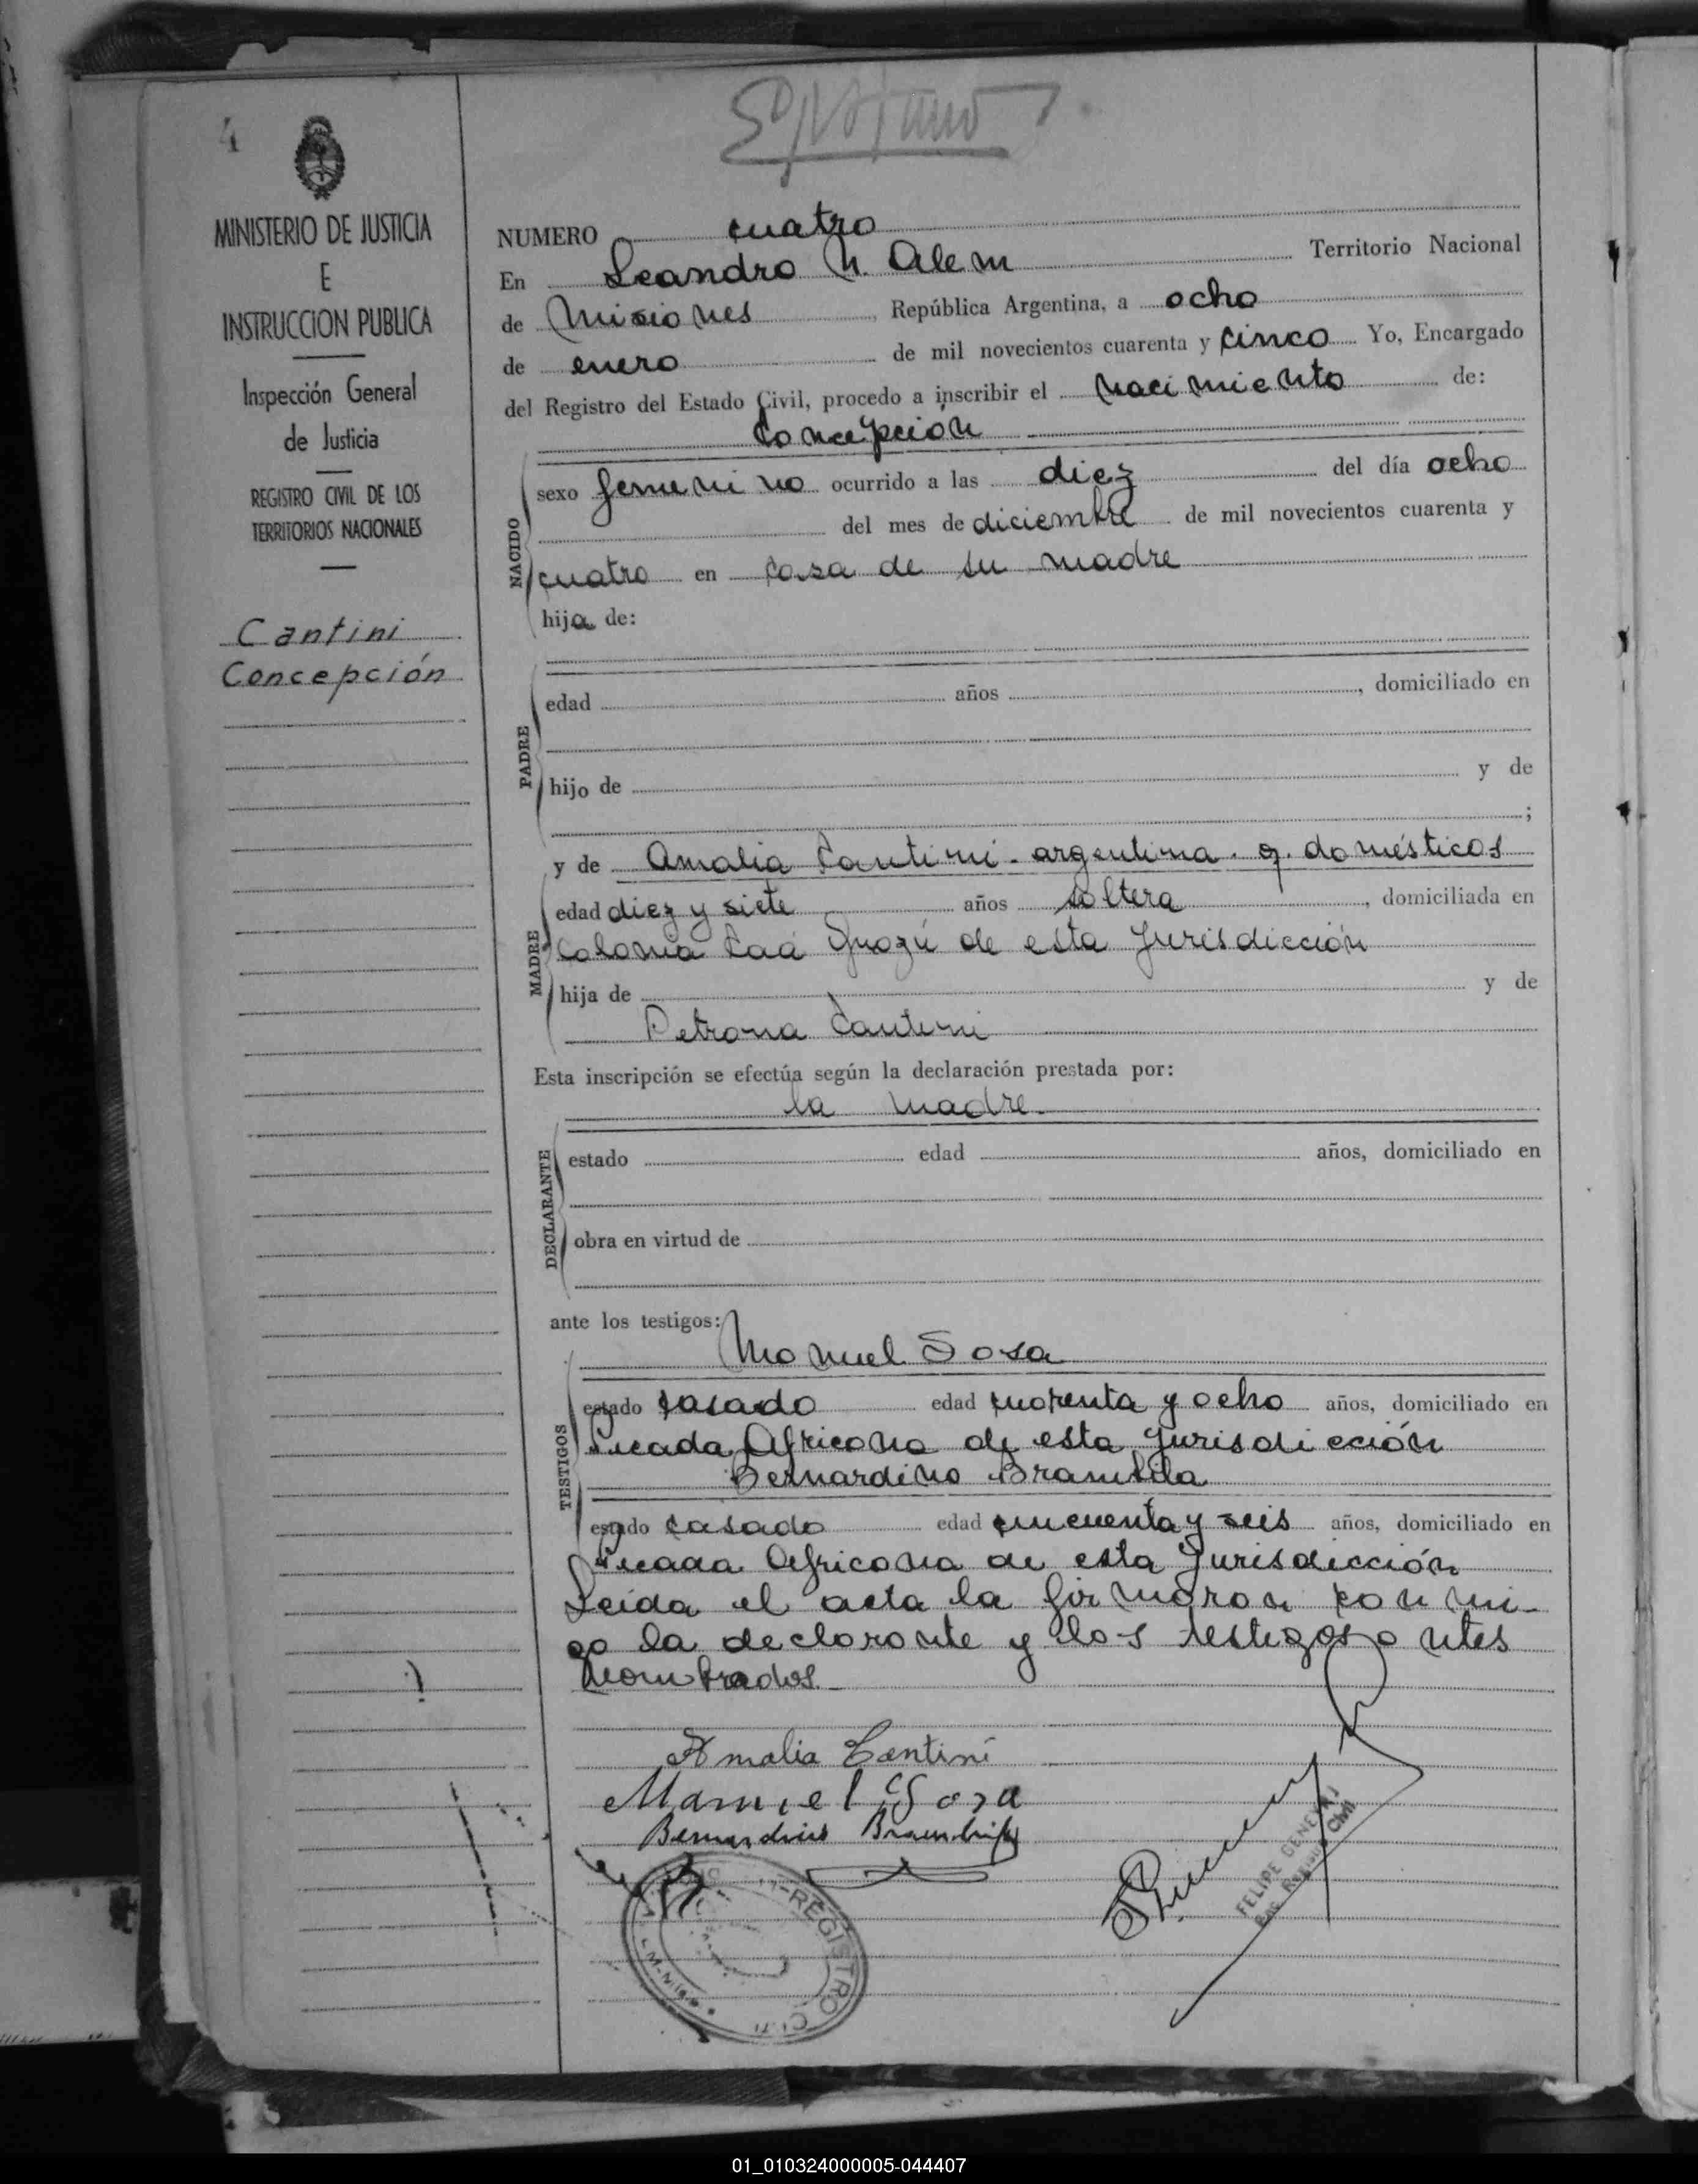 4
MINISTERIO DE JUSTICIA
E
INSTRUCCION PUBLICA
Inspección General
de Justicia
REGISTRO CIVIL DE LOS
TERRITORIOS NACIONALES
Cantini
Concepción
NUMERO cuatro
En Leandro N. Alem Territorio Nacional
de Misiones, República Argentina, a ocho
de enero de mil novecientos cuarenta y cinco Yo, Encargado
del Registro del Estado Civil, procedo a inscribir el nacimiento de:
Concepción
NACIDO
sexo femenino ocurrido a las diez del día ocho
del mes de diciembre de mil novecientos cuarenta y
cuatro en casa de su madre
hija de:
PADRE
edad años, domiciliado en
hijo de y de
;
MADRE
y de Amalia Cantini - argentina - q. domésticos
edad diez y siete años soltera, domiciliada en
Colonia Caá Guazú de esta Jurisdicción
hija de y de
Petrona Cantini
Esta inscripción se efectúa según la declaración prestada por:
la madre.
DECLARANTE
estado edad años, domiciliado en
obra en virtud de
ante los testigos:
Manuel Sosa
TESTIGOS
estado casado edad cuarenta y ocho años, domiciliado en
Picada Africana de esta Jurisdicción
Bernardino Brambila
estado casado edad cincuenta y seis años, domiciliado en
Picada Africana de esta Jurisdicción
Leída el acta la firmaron conmi-
go la declarante y los testigos antes
nombrados.
Amalia Cantini
Manuel Sosa
Bernardino
FELIPE
REGISTRO CIVIL
01_010324000005-044407